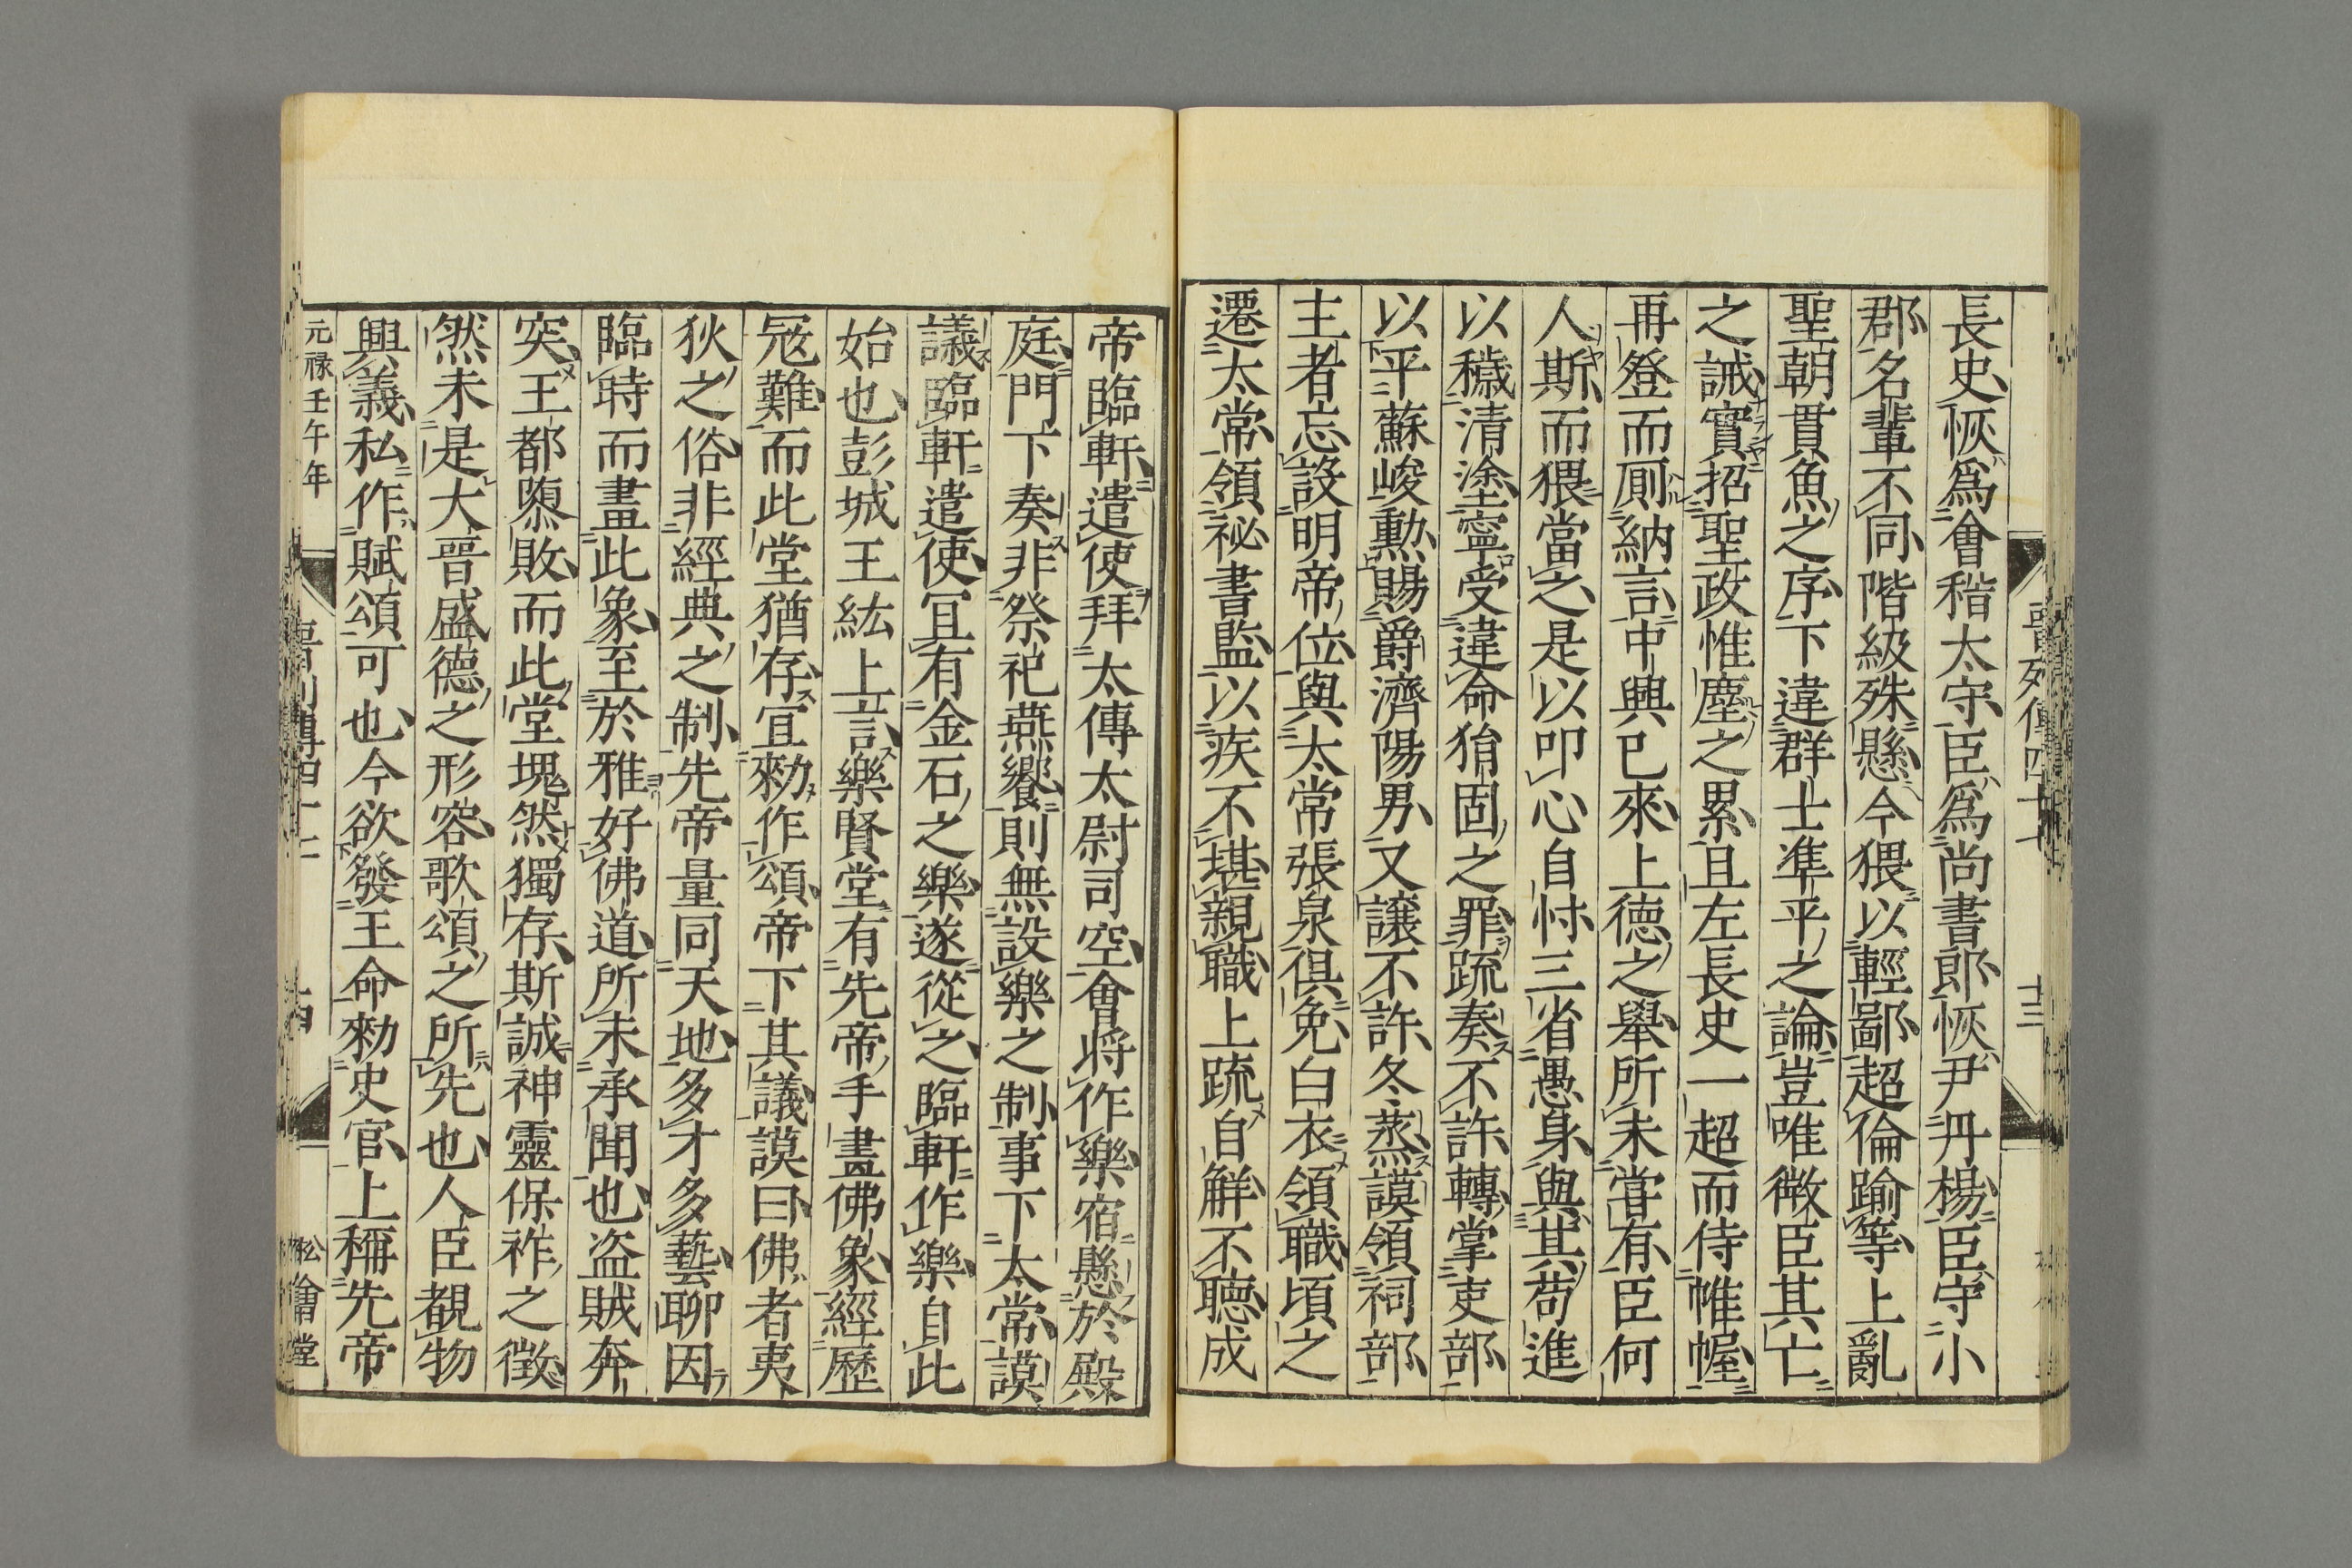 晉列傳四十七
十三
長史恢爲會稽太守臣爲尚書郎恢尹丹楊臣守小
郡名輩不同階級殊懸今猥以輕鄙超倫踰等上亂
聖朝貫魚之序下違群士準平之論豈唯微臣其亡
之誡實招聖政惟塵之累且左長史一超而侍帷幄
再登而厠納言中興已來上德之舉所未嘗有臣何
人斯而猥當之是以叩心自忖三省愚身與其苟進
以穢清塗寧受違命狷固之罪疏奏不許轉掌吏部
以平蘇峻勳賜爵濟陽男又讓不許冬蒸謨領祠部
主者忘設明帝位與太常張泉俱免白衣領職頃之
遷太常領祕書監以疾不堪親職上疏自解不聽成
帝臨軒遣使拜太傅太尉司空會將作樂宿懸於殿
庭門下奏非祭祀燕饗則無設樂之制事下太常謨
議臨軒遣使宜有金石之樂遂從之臨軒作樂自此
始也彭城王紘上言樂賢堂有先帝手畫佛象經歷
冦難而此堂猶存宜勑作頌帝下其議謨曰佛者夷
狄之俗非經典之制先帝量同天地多才多藝聊因
臨時而畫此象至於雅好佛道所未承聞也盜賊奔
突王都隳敗而此堂塊然獨存斯誠神靈保祚之徵
然未是大晉盛德之形容歌頌之所先也人臣覩物
興義私作賦頌可也今欲發王命勑史官上稱先帝
元禄壬午年
晉列傳四十七
十四
松會堂